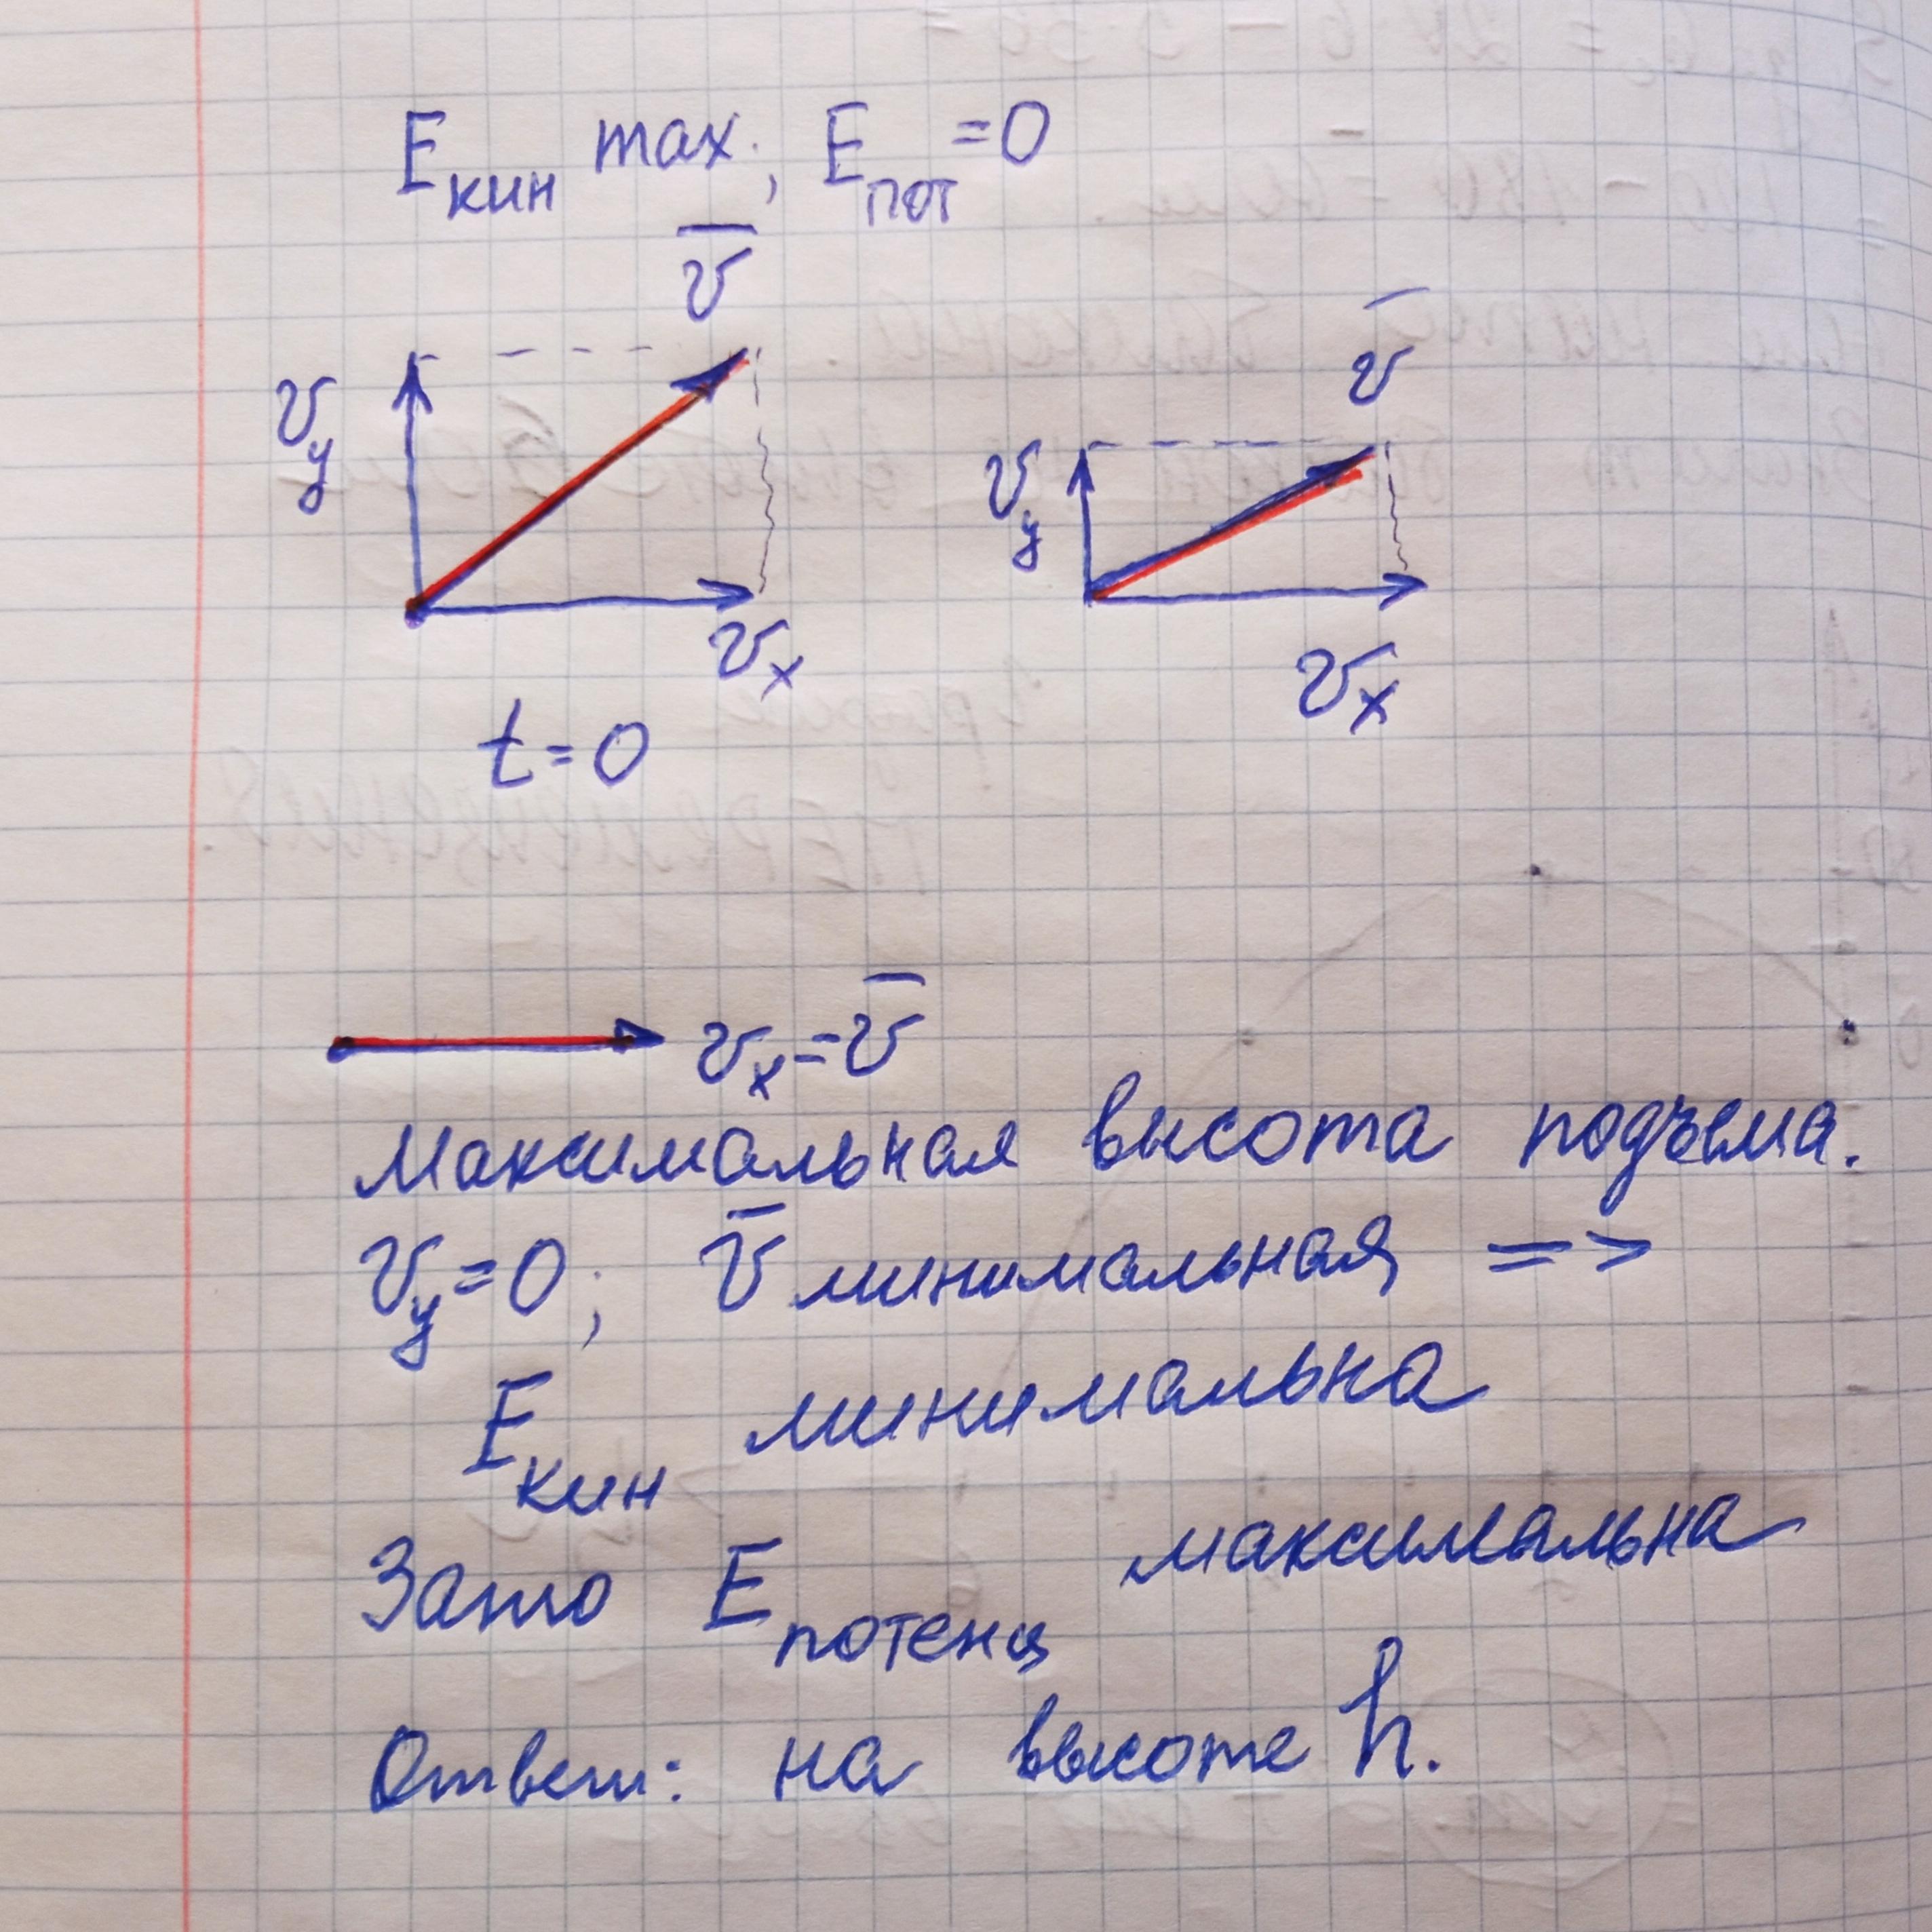 E кин max; E пот = 0
v̅
v̅
v y
v y
v x
v x
t = 0
v x = v̅
Максимальная высота подъема.
v y = 0; v̅ минимальная =>
E кин минимальна
Зато E потенц максимальна
Ответ: на высоте h.